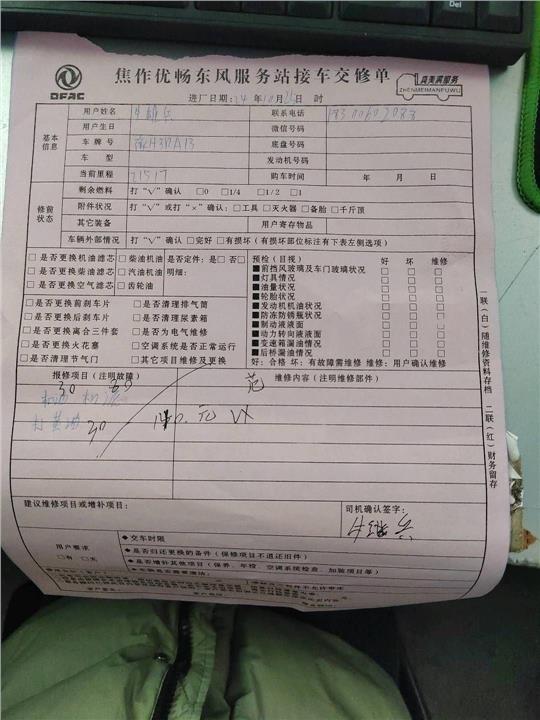 DFAC
焦作优畅东风服务站接车交修单
真美满服务
ZHENMEIMANFUWU
进厂日期:24年10月25日 时
基本信息
用户姓名 联系电话
用户生日 微信号码
车牌号 底盘号码
车型 发动机号码
当前里程 21517 购车时间 年 月 日
修前状态
剩余燃料 打“√”确认 □0 □1/4 □1/2 □1
附件状况 打“√”或打“×”确认:□工具 □灭火器 □备胎 □千斤顶
其它装备 用户寄存物品
车辆外部情况 打“√”确认 □完好 □有损坏(有损坏部位标注有下表左侧选项)
□是否更换机油滤芯 □柴油机油 是否定件:是□ 否□
□是否更换柴油滤芯 □汽油机油 明细:
□是否更换空气滤芯 □齿轮油
□是否更换前刹车片 □是否清理排气筒
□是否更换后刹车片 □是否清理尿素箱
□是否更换离合三件套 □是否为电气维修
□是否更换火花塞 □空调系统是否正常运行
□是否清理节气门 □其它项目维修及更换
预检(目视) 好 坏 维修
■前挡风玻璃及车门玻璃状况 □ □ □
■灯具情况 □ □ □
■油量状况 □ □ □
■轮胎状况 □ □ □
■发动机机油状况 □ □ □
■防冻防锈瓶状况 □ □ □
■制动液液面 □ □ □
■动力转向液液面 □ □ □
■变速箱漏油情况 □ □ □
■后桥漏油情况 □ □ □
好:合格 坏:有故障需维修 维修:用户确认维修
报修项目(注明故障) 维修内容(注明维修部件)
30 80 范
机油 机滤
打黄油 30 140.元 VX
建议维修项目或增补项目:
司机确认签字:
用户要求
□有 □无
◆交车时限
◆是否归还更换的备件(保修项目不退还旧件)
◆是否增补其他项目(保养、年检、空调系统检查、加装项目等)
一联(白)随维修资料存档 二联(红)财务留存
Del